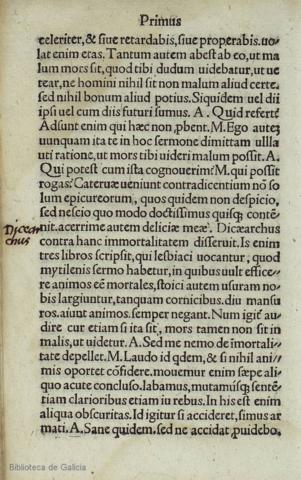 Primus
celeriter, & siue retardabis, siue properabis. uo⸗
lat enim etas. Tantum autem abest ab eo, ut ma
lum mors sit, quod tibi dudum uidebatur, ut ue
rear, ne homini nihil sit non malum aliud certe,
sed nihil bonum aliud potius. Siquidem uel dii
ipsi uel cum diis futuri sumus. A. Quid refert?
Adsunt enim qui hæc non ꝓbent. M. Ego autẽ
nunquam ita te in hoc sermone dimittam ulla
uti ratione, ut mors tibi uideri malum possit. A.
Qui potest cum ista cognouerim? M. qui possit
rogas? Cateruæ ueniunt contradicentium nõ so
lum epicureorum, quos quidem non despicio,
sed nescio quo modo doctissimus quisq; contẽ⸗
nit. acerrime autem deliciæ meæ. Dicæarchus
Dicæar
chus
contra hanc immortalitatem disseruit. Is enim
tres libros scripsit, qui lesbiaci uocantur, quod
mytilenis sermo habetur, in quibus uult effice⸗
re animos eẽ mortales, stoici autem usuram no⸗
bis largiuntur, tanquam cornicibus. diu mansu
ros. aiunt animos. semper negant. Num igiť au⸗
dire cur etiam si ita sit, mors tamen non sit in
malis, ut uidetur. A. Sed me nemo de ĩmortali⸗
tate depellet. M. Laudo id qdem, & si nihil ani⸗
mis oportet cõfidere. mouemur enim sæpe ali⸗
quo acute concluso. labamus, mutamusq; sentẽ⸗
tiam clarioribus etiam iu rebus. In his est enim
aliqua obscuritas. Id igitur si acciderit, simus ar
mati. A. Sane quidem. sed ne accidat, ꝓuidebo.
Biblioteca de Galicia